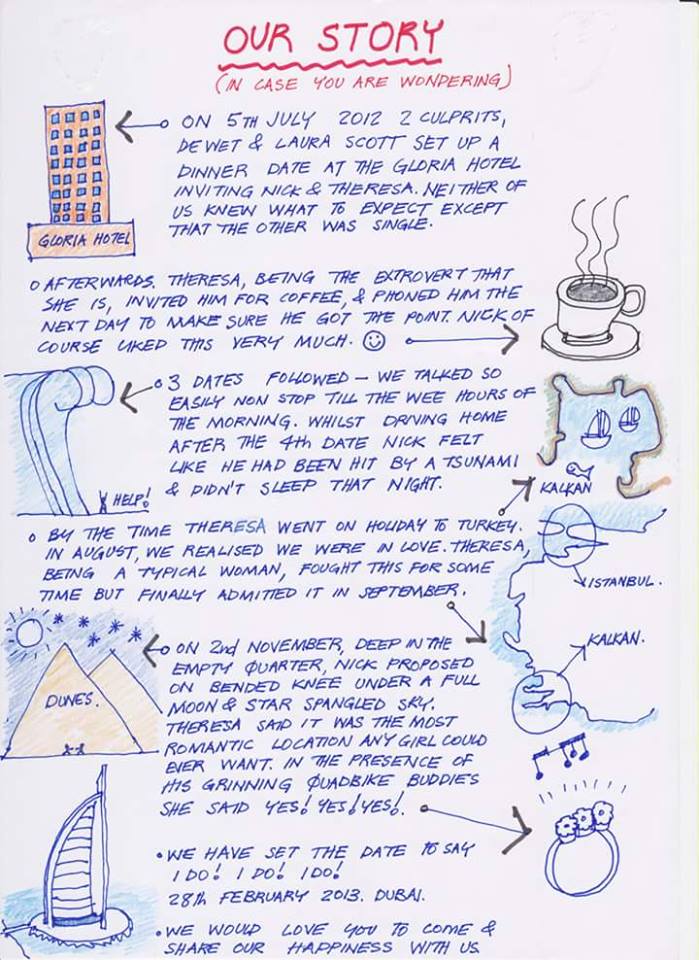 OUR STORY
(IN CASE YOU ARE WONDERING)
ON 5TH JULY 2012 2 CULPRITS,
DEWET & LAURA SCOTT SET UP A
DINNER DATE AT THE GLORIA HOTEL
INVITING NICK & THERESA. NEITHER OF
US KNEW WHAT TO EXPECT EXCEPT
THAT THE OTHER WAS SINGLE.
GLORIA HOTEL
AFTERWARDS. THERESA, BEING THE EXTROVERT THAT
SHE IS, INVITED HIM FOR COFFEE, & PHONED HIM THE
NEXT DAY TO MAKE SURE HE GOT THE POINT. NICK OF
COURSE LIKED THIS VERY MUCH. ☺
3 DATES FOLLOWED – WE TALKED SO
EASILY NON STOP TILL THE WEE HOURS OF
THE MORNING. WHILST DRIVING HOME
AFTER THE 4th DATE NICK FELT
LIKE HE HAD BEEN HIT BY A TSUNAMI
& DIDN'T SLEEP THAT NIGHT.
HELP!
KALKAN
BY THE TIME THERESA WENT ON HOLIDAY TO TURKEY.
IN AUGUST, WE REALISED WE WERE IN LOVE. THERESA,
BEING A TYPICAL WOMAN, FOUGHT THIS FOR SOME
TIME BUT FINALLY ADMITTED IT IN SEPTEMBER.
ISTANBUL.
KALKAN.
ON 2nd NOVEMBER, DEEP IN THE
EMPTY QUARTER, NICK PROPOSED
ON BENDED KNEE UNDER A FULL
MOON & STAR SPANGLED SKY.
THERESA SAID IT WAS THE MOST
ROMANTIC LOCATION ANY GIRL COULD
EVER WANT. IN THE PRESENCE OF
HIS GRINNING QUADBIKE BUDDIES
SHE SAID YES! YES! YES!.
DUNES.
WE HAVE SET THE DATE TO SAY
I DO! I DO! I DO!
28th FEBRUARY 2013. DUBAI.
WE WOULD LOVE YOU TO COME &
SHARE OUR HAPPINESS WITH US.